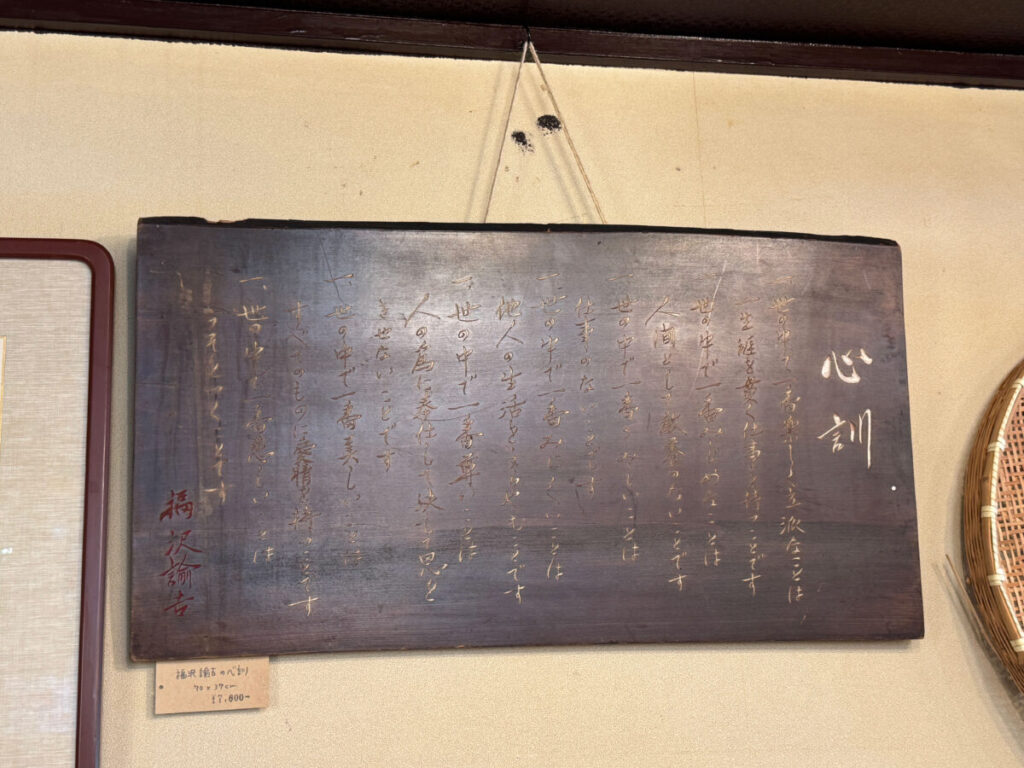 心訓
一、世の中で一番楽しく立派なことは、
一生涯を貫く仕事を持つことです
一、世の中で一番みじめなことは
人間として教養のないことです
一、世の中で一番さびしいことは
仕事のないことです
一、世の中で一番みにくいことは
他人の生活をうらやむことです
一、世の中で一番尊いことは
人の為に奉仕して決して恩を
きせないことです
一、世の中で一番美しいことは
すべてのものに愛情を持つことです
一、世の中で一番悲しいことは
うそをつくことです
福沢諭吉
福沢諭吉の心訓
70×37cm
¥7,000-